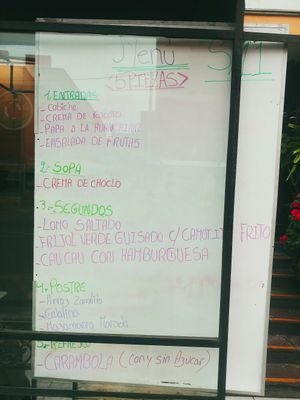 Menú S/.21
<5 PIEZAS>
1. ENTRADAS
- CEBICHE
- CREMA DE ROCOTO
- PAPA A LA HUANCAINA
- ENSALADA DE FRUTAS
2- SOPA
- CREMA DE CHOCLO
3.- SEGUNDOS
- LOMO SALTADO
- FRIJOL VERDE GUISADO C/ CAMOTE FRITO
- CAU CAU CON HAMBURGUESA
4. POSTRE
- Arroz Zambito
- Gelatina
- Mazamorra Morada
5. REFRESCO
- CARAMBOLA (con y sin Azucar)